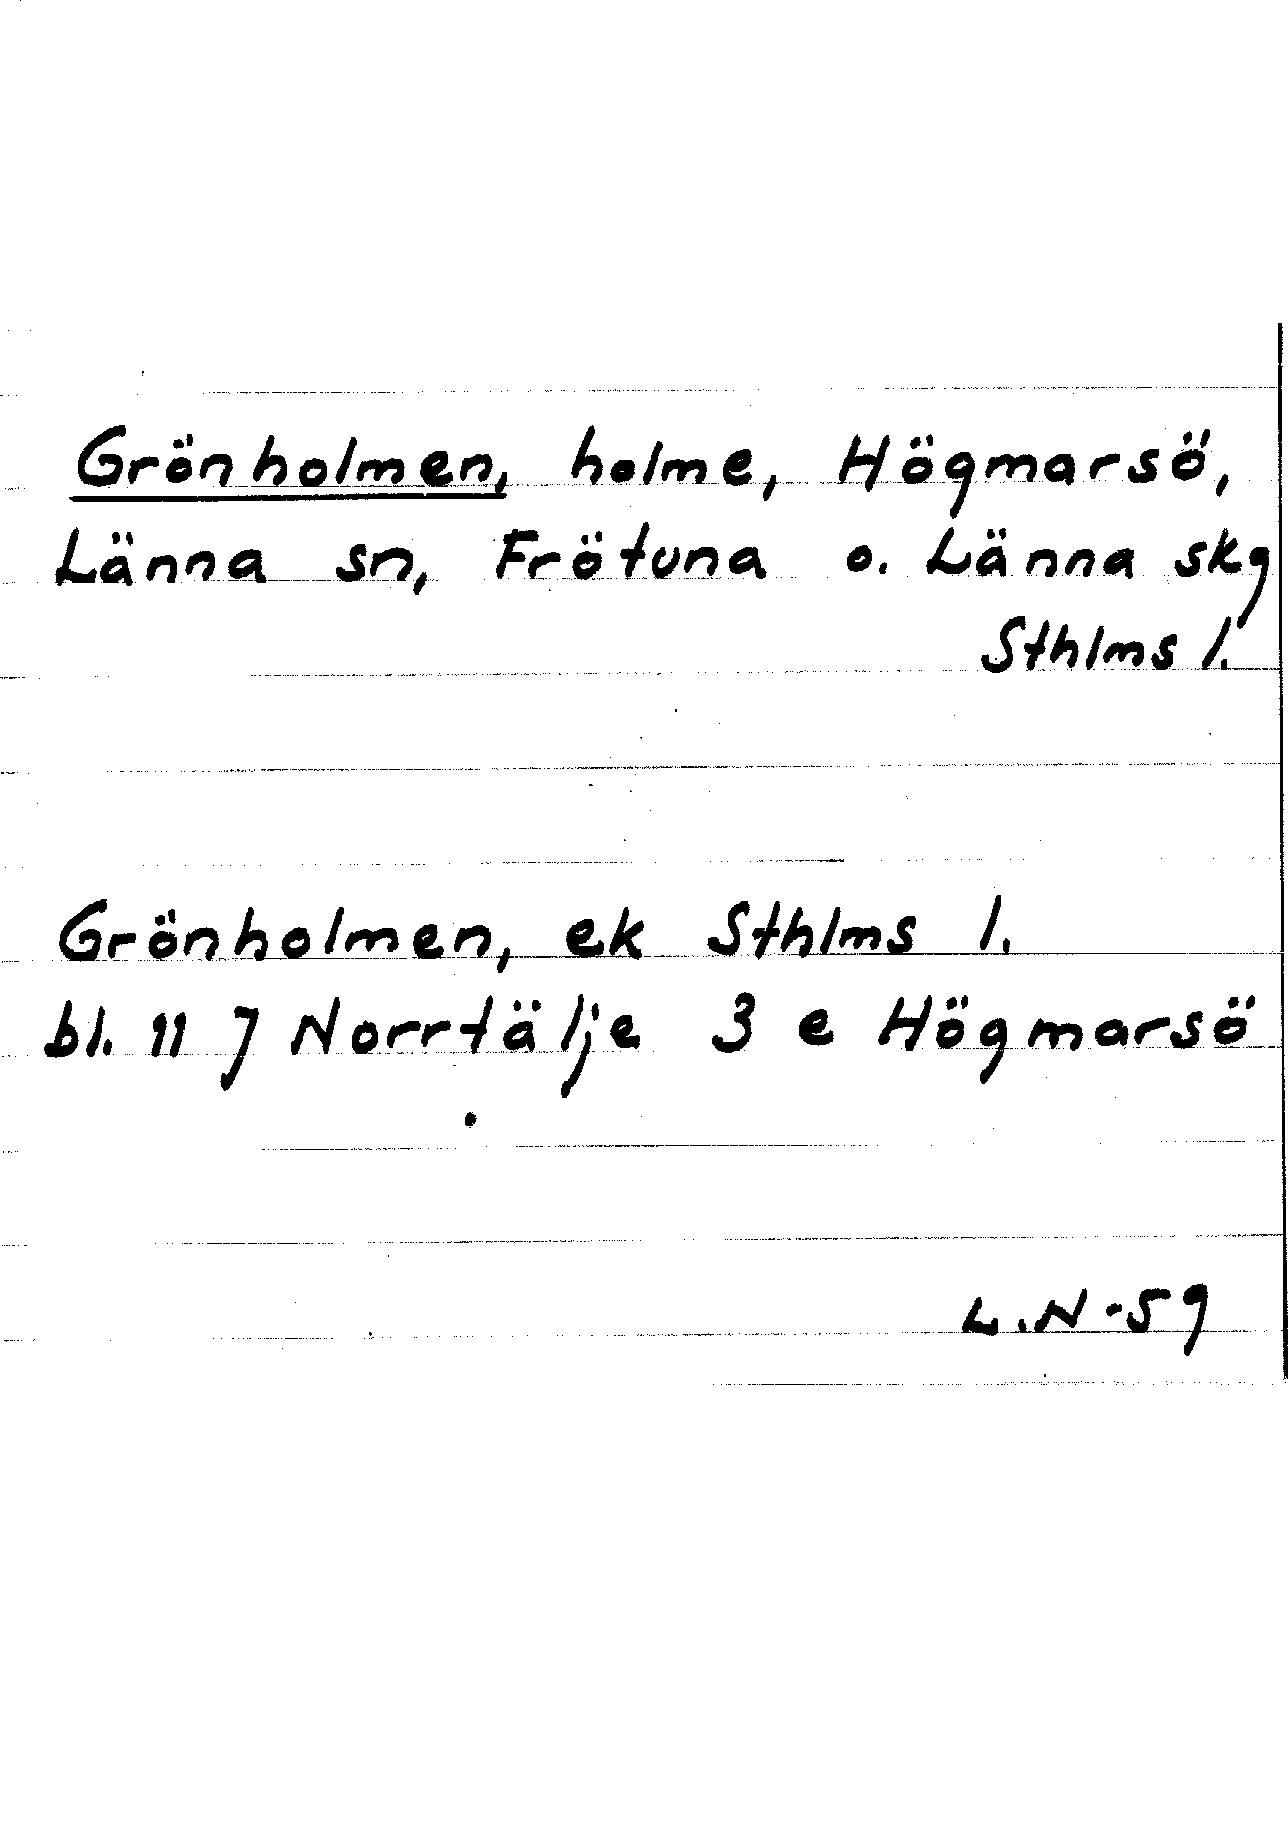 Grönholmen, holme, Högmarsö,
Länna sn, Frötuna o. Länna skg
Sthlms l.
Grönholmen, ek Sthlms l.
bl. 11 J Norrtälje 3 e Högmarsö
L.N-59